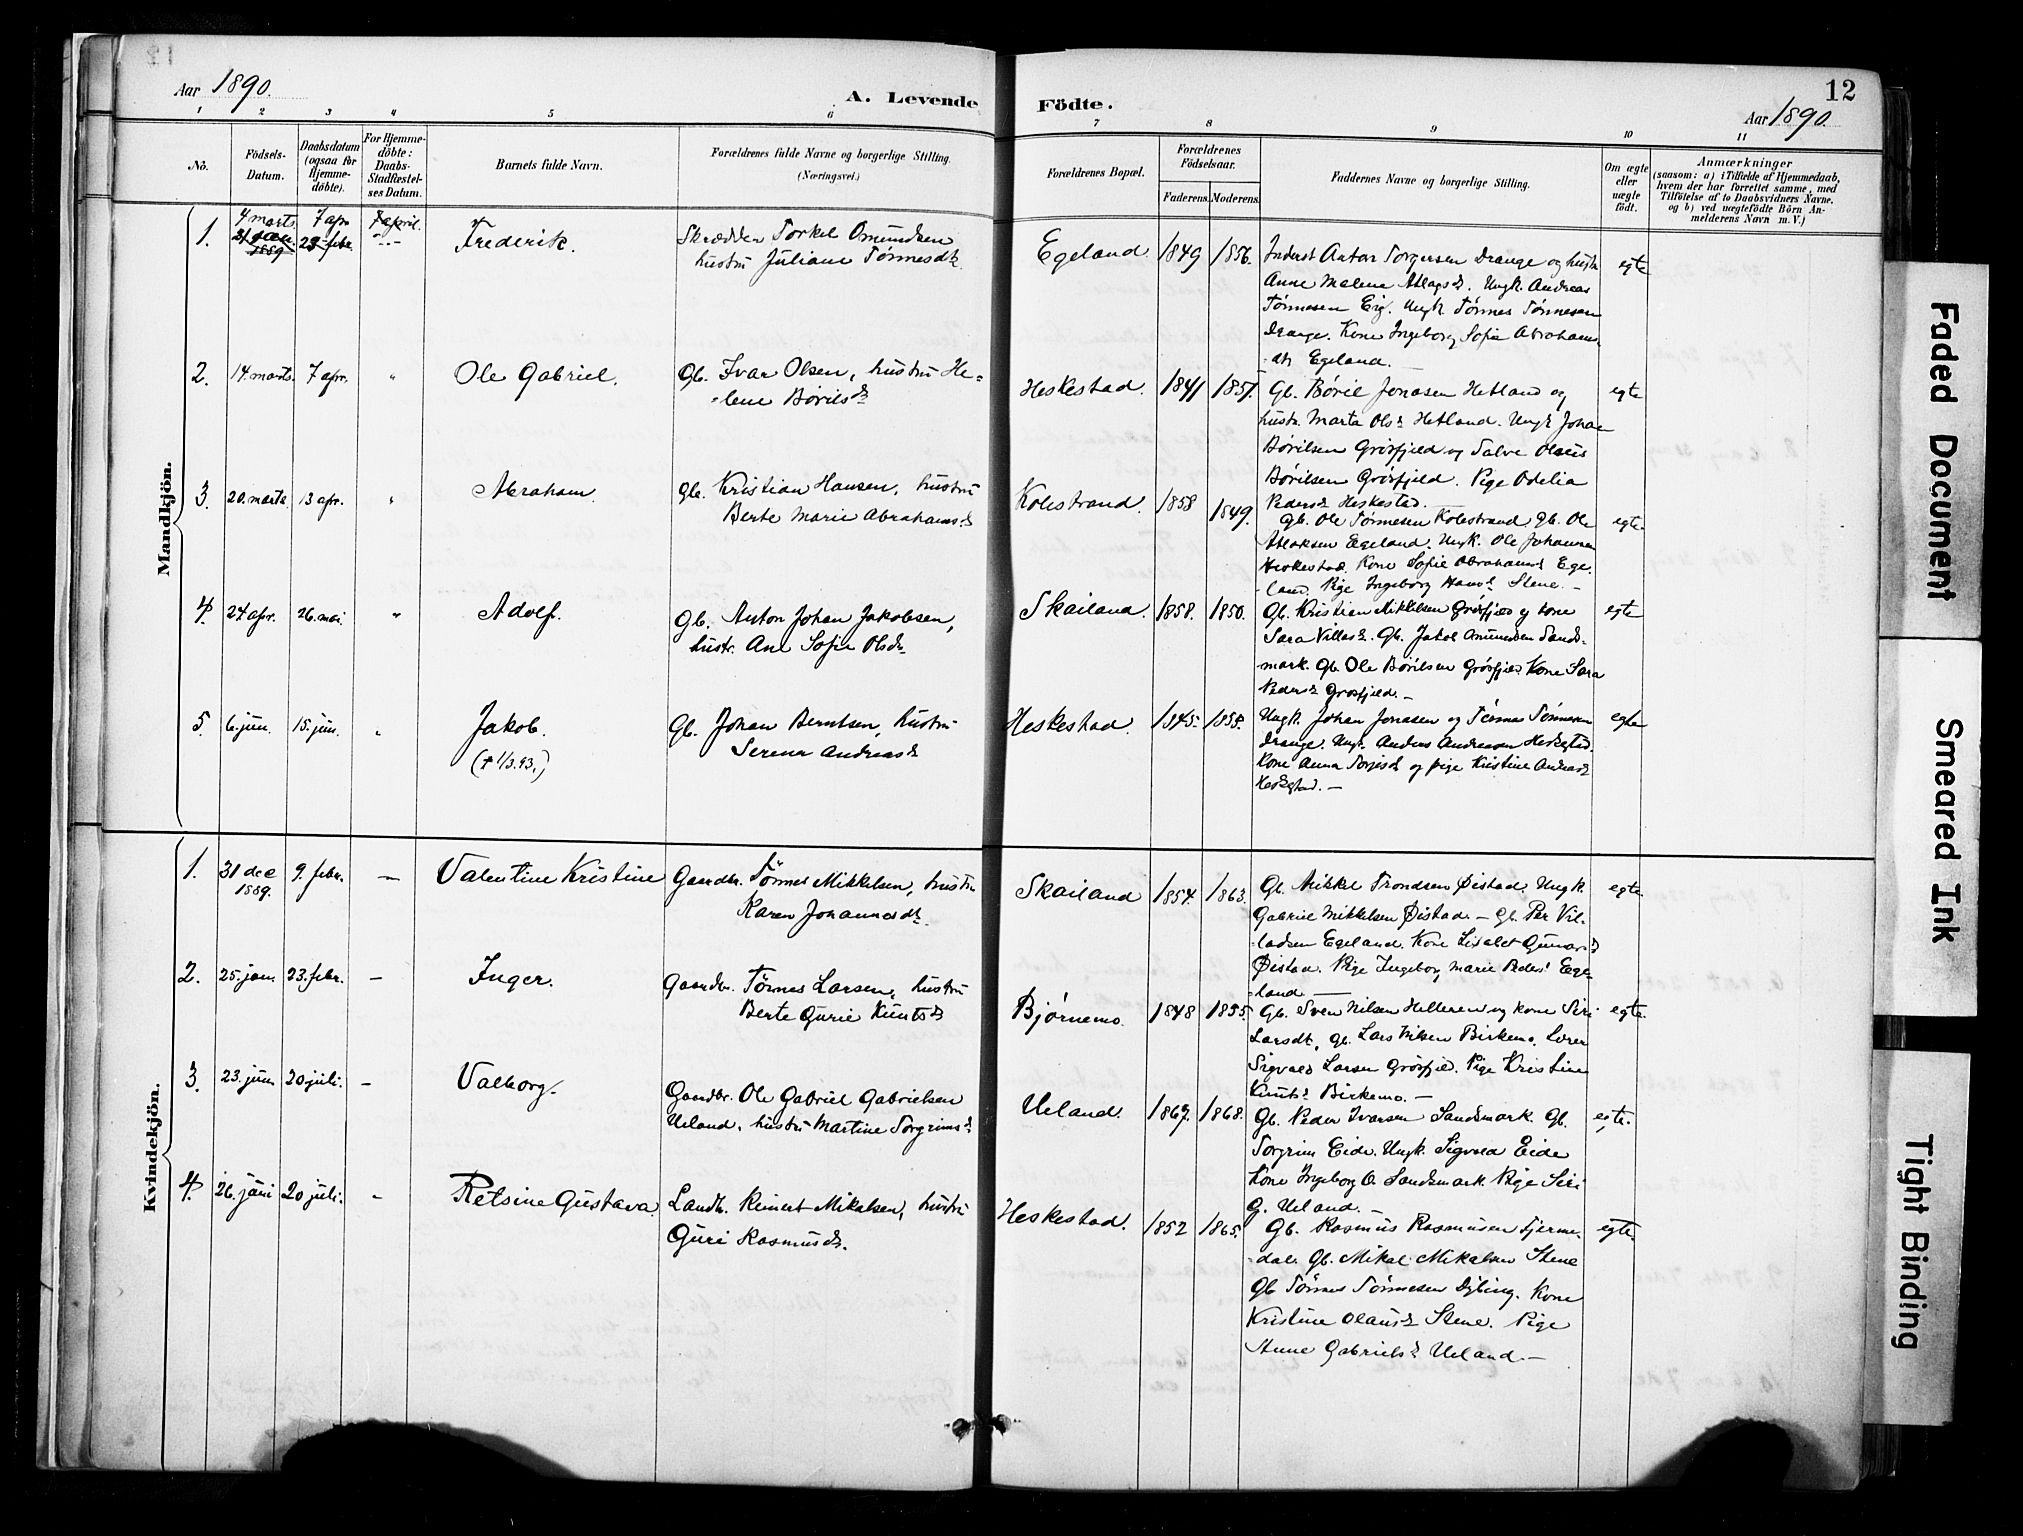 Aar 1890.
A. Levende Födte.
12
Aar 1890.
1 2 3 4 5 6 7 8 9 10 11
No.
Födsels-Datum.
Daabsdatum (ogsaa for Hjemme-döbte).
For Hjemme-döbte: Daabs-Stadfæstel-ses Datum.
Barnets fulde Navn.
Forældrenes fulde Navne og borgerlige Stilling.
(Næringsvei.)
Forældrenes Bopæl.
Forældrenes Födselsaar.
Faderens. Moderens.
Faddernes Navne og borgerlige Stilling.
Om ægte eller uægte födt.
Anmærkninger
(saasom: a) i Tilfælde af Hjemmedaab,
hvem der har forrettet samme, med
Tilföielse af to Daabsvidners Navne,
og b) ved uægtefödte Börn An-
melderens Navn m. V.)
Mandkjön.
1. 4 marts 7 apr 7 april. Frederik. Skrædder Torkel Omundsen
hustru Juliane Tønnesdt. Egeland 1849 1856. egte
Anne Malene Atlagsd. Ungk. Andreas
Tønnesen Eig. Ungk Tønnes Tønnesen
Drange. Kone Ingeborg Sofie Abrahams-
dt Egeland.
2. 14. marts. 7 apr. " Ole Gabriel. Gb. Ivar Olsen, hustru He-
-lene Børilsd Heskestad. 1841 1857. Gb. Børil Jonasen Hetland og egte
hustr. Marta Olsd Hetland. Ungk Johan
Børilsen Grøsfjeld og Salve Olaus
Børilsen Grøsfjeld. Pige Odelia
Pedersd Heskestad.
3. 20. marts 13 apr. " Abraham. Gb. Kristian Hansen, hustru
Berte Marie Abrahamsd Kolestrand. 1858 1849. Gb. Ole Tønnesen Kolestrand, Gb. Ole egte.
Atlaksen Egeland. Ungk. Ole Johannesen
Heskestad. Kone Sofie Abrahamsd Ege-
land. Pige Ingeborg Hansd Stene. –
4. 24. apr. 26. mai. " Adolf. Gb. Anton Johan Jakobsen,
hustr. Ane Sofie Olsd. Skailand. 1858. 1850. Gb. Kristian Mikkelsen Grøsfjeld og kone egte
Sara Villasd. Gb. Jakob Omundsen Sands-
mark. Gb. Ole Børilsen Grøsfjeld Kone Sara
Pedersd Grøsfjeld. –
5. 6. jun. 15. jun. " Jakob. Gb. Johan Berntsen, hustru
(† 1/3.93.) Serena Andreasd Heskestad. 1845. 1855. Ungk. Johan Jonasen og Tønnes Tønnesen egte
Drange. Ungk. Anders Andreasen Heskestad.
Kone Anna Torjesd og pige Kristine Andreasd
Heskestad. –
Kvindekjön.
1. 31 dec 1889. 9. febr. — Valentine Kristine Gaardbr. Tønnes Mikkelsen, hustru
Karen Johannesdt. Skailand 1854. 1863. Gb. Mikkel Trondsen Øistad. Ungk egte.
Gabriel Mikkelsen Øistad. – Gb. Per Vil-
-ladsen Egeland. Kone Lisabet Gunarsd
Øistad. Pige Ingeborg Marie Pedersd Ege-
-land —
2. 25. jan. 23. febr. – Inger. Gaardbr. Tønnes Larsen, hustru
Berte Gurie Knutsd Bjørnemo. 1848 1855. Gb. Sven Nilsen Helleren og kone Siri egte.
Larsdt, Gb. Lars Nilsen Birkemo. Lærer
Sigvald Larsen Grøsfjeld. Pige Kristine
Knutsd Birkemo. –
3. 23. juni 20 juli. – Valborg. Gaardbr. Ole Gabriel Gabrielsen
Ueland, hustru Martine Torgrimsd Ueland. 1868. Gb. Peder Ivarsen Sandsmark. Gb. egte.
Torgrim Eide. Ungk. Sigvald Eide
Kone Ingeborg O. Sandsmark Pige Siri
G. Ueland. –
4. 26. juni 20 juli. " Retsine Gustava. Landh. Reinert Mikalsen, hustru
Guri Rasmusd. Heskestad. 1852 1865. Gb. Rasmus Rasmusen Fjerme- egte.
-dal. Gb. Mikal Mikalsen Stene
Gb Tønnes Tønnesen Dybing. Kone
Kristine Olausd Stene. Pige
Anne Gabrielsd Ueland. –
Faded Document
Smeared Ink
Tight Binding